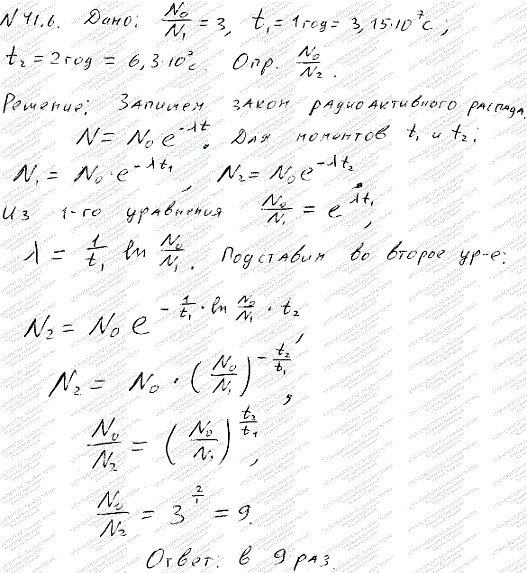 N 41.6. Дано: N₀/N₁ = 3, t₁ = 1 год = 3,15·10⁷ с;
t₂ = 2 год = 6,3·10⁷ с. Опр. N₀/N₂.
Решение: Запишем закон радиоактивного распада.
N = N₀ e^(-λt). Для моментов t₁ и t₂:
N₁ = N₀·e^(-λt₁), N₂ = N₀e^(-λt₂)
Из 1-го уравнения N₀/N₁ = e^(λt₁),
λ = 1/t₁ ln N₀/N₁. Подставим во второе ур-е:
N₂ = N₀ e^(-1/t₁·ln N₀/N₁·t₂),
N₂ = N₀·(N₀/N₁)^(-t₂/t₁),
N₀/N₂ = (N₀/N₁)^(t₂/t₁),
N₀/N₂ = 3^(2/1) = 9.
Ответ: в 9 раз.